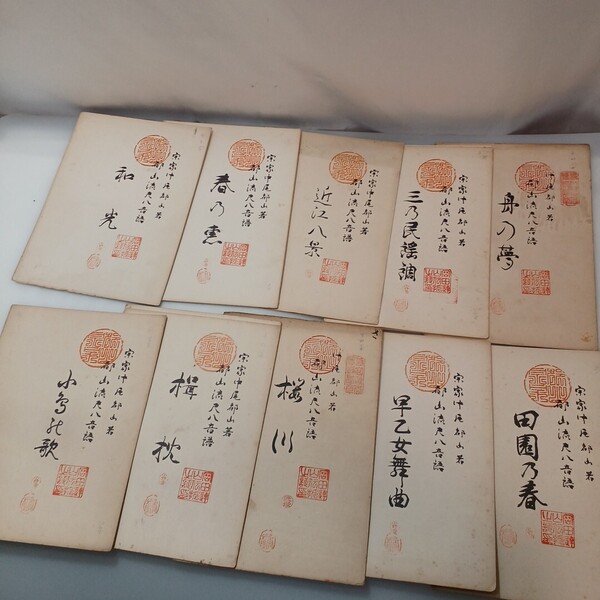 宗家中尾都山著
都山流尺八音譜
和光
宗家中尾都山著
都山流尺八音譜
春乃恵
宗家中尾都山著
都山流尺八音譜
近江八景
宗家中尾都山著
都山流尺八音譜
三乃民謡調
中尾都山著
都山流尺八音譜
舟の夢
宗家中尾都山著
都山流尺八音譜
小鳥の歌
宗家中尾都山著
都山流尺八音譜
楫枕
中尾都山著
都山流尺八音譜
桜川
宗家中尾都山著
都山流尺八音譜
早乙女舞曲
宗家中尾都山著
都山流尺八音譜
田園乃春